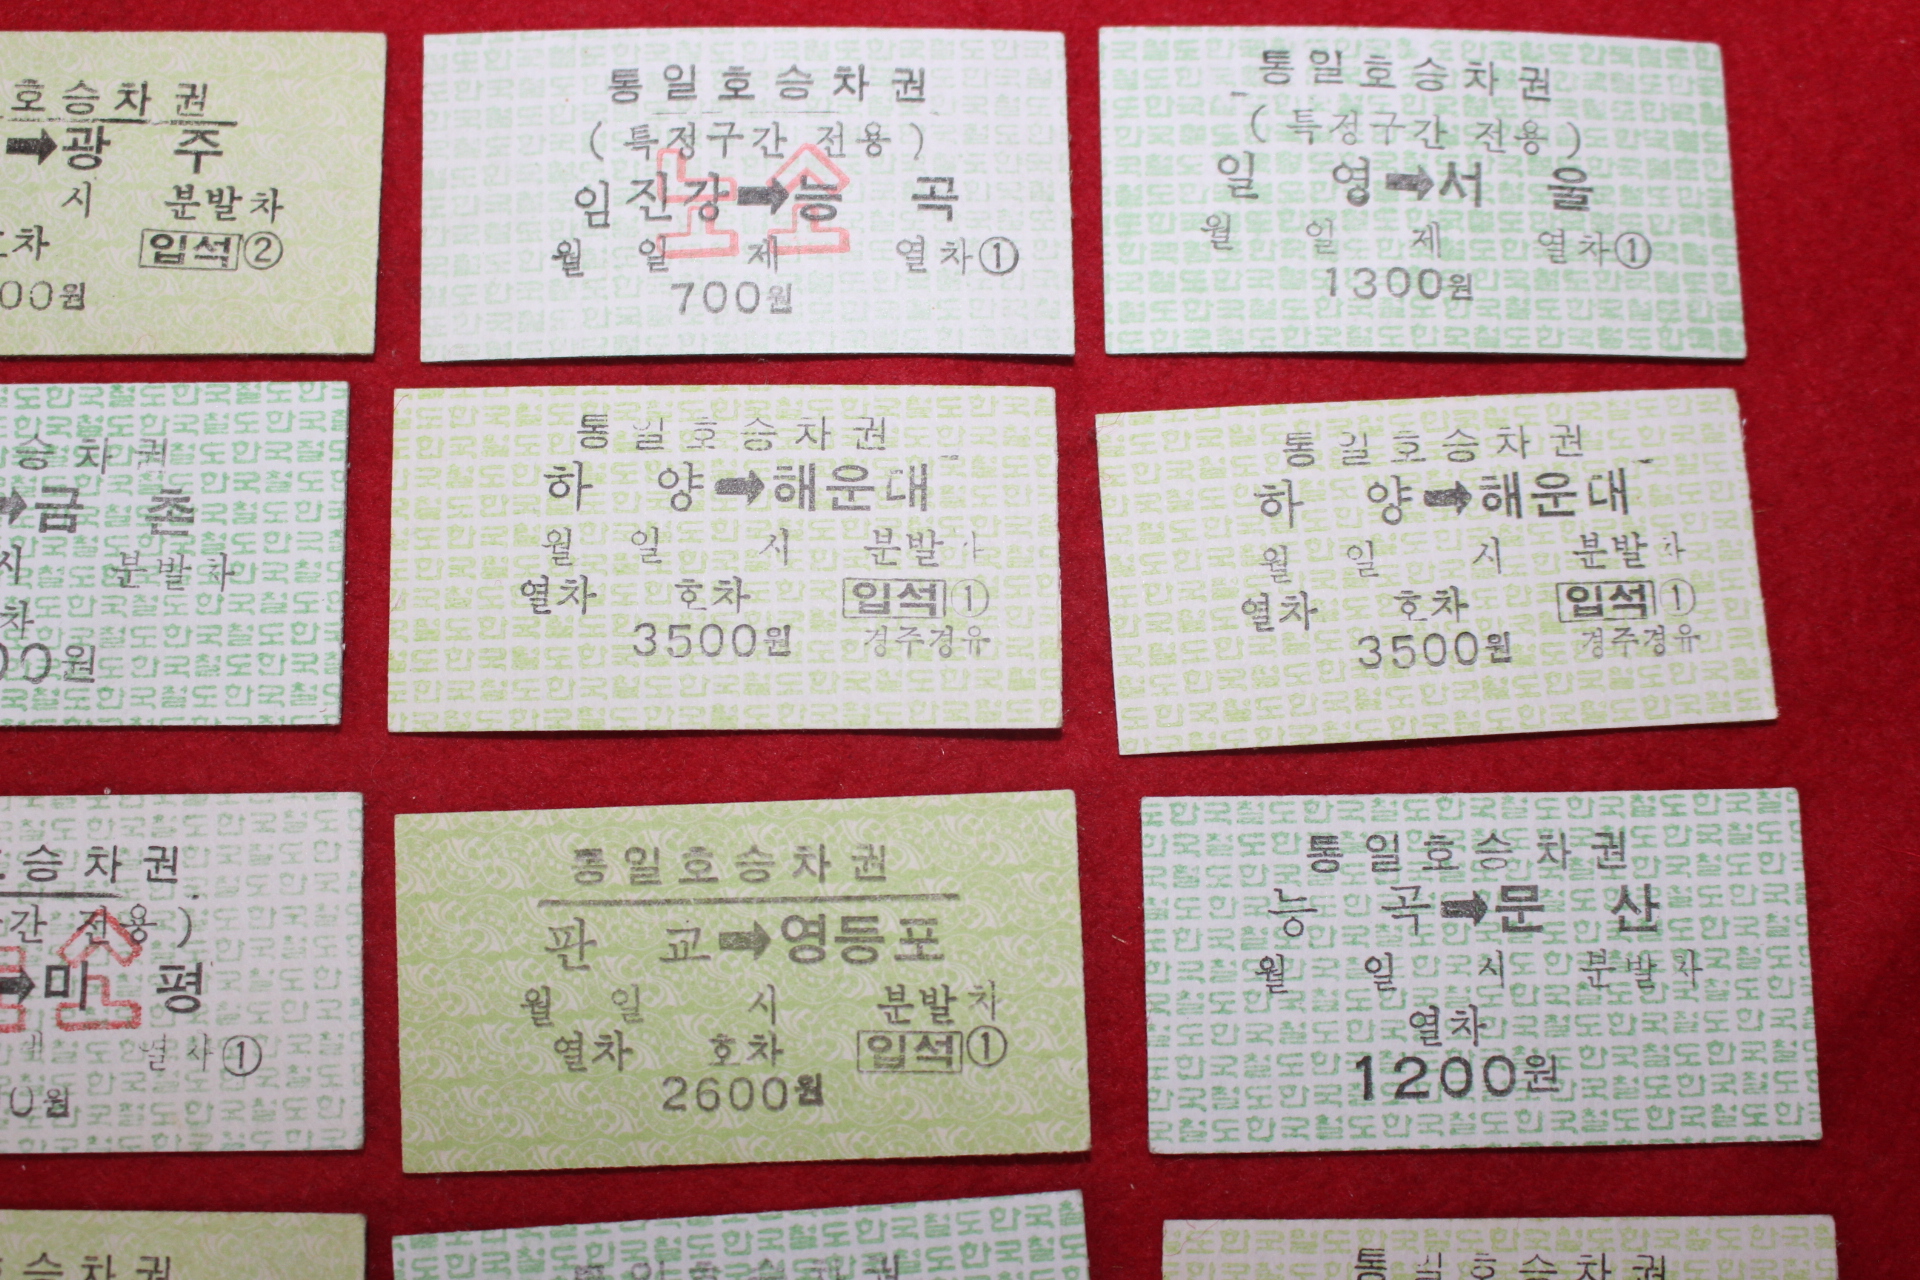 호승차권
➡광 주
시 분발차
호차 입석②
00원
통일호승차권
(특정구간 전용)
임진강➡능 곡
노소
월 일 제 열차①
700원
통일호승차권
(특정구간 전용)
일 영➡서 울
월 일 제 열차①
1300원
승차권
➡금 촌
시 분발차
차
00원
통일호승차권
하 양➡해운대
월 일 시 분발차
열차 호차 입석①
3500원 경주경유
통일호승차권
하 양➡해운대
월 일 시 분발차
열차 호차 입석①
3500원 경주경유
호승차권
간 전용)
➡미 평
소
제 열차①
0원
통일호승차권
판 교➡영등포
월 일 시 분발차
열차 호차 입석①
2600원
통일호승차권
능 곡➡문 산
월 일 시 분발차
열차
1200원
호승차권
통일호승차권
통일호승차권